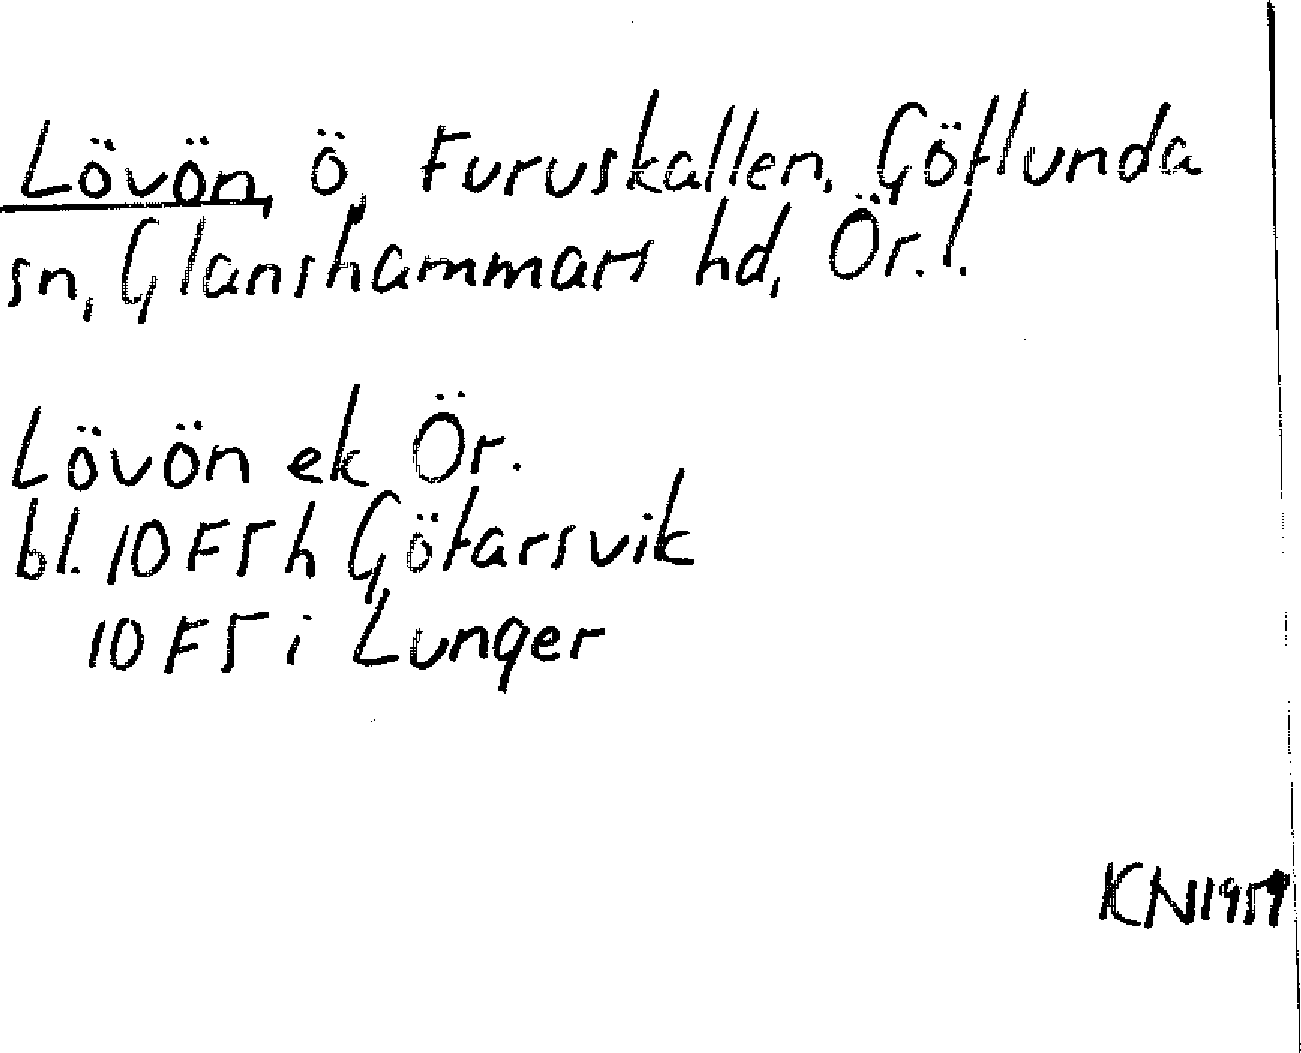 Lövön, ö, Furuskallen, Götlunda
sn, Glanshammars hd, Ör. l.
Lövön ek Ör.
bl. 10F5h Götarsvik
10F5i Lunger
KN1959